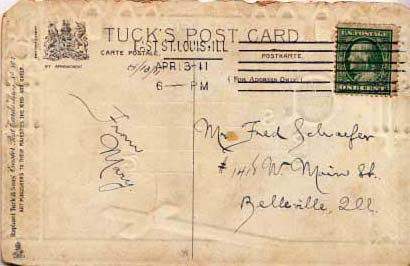 TUCK'S POST CARD
CARTE POSTALE
POSTKARTE.
(FOR ADDRESS ONLY.)
BY APPOINTMENT
ST. LOUIS. ILL
APR 13-11
6—PM
U.S. POSTAGE
ONE CENT
From
Mary
Mr Fred Schaefer
# 1418 W. Main St.
Belleville, Ill.
Raphael Tuck & Sons'
ART PUBLISHERS TO THEIR MAJESTIES THE KING AND QUEEN